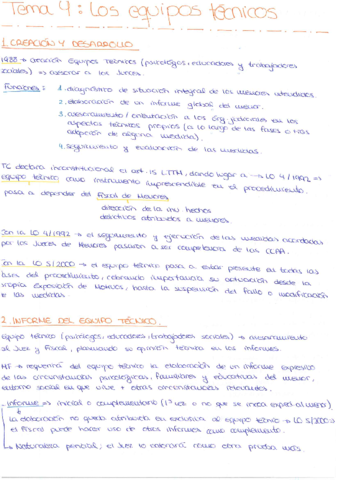 Tema 4: Los equipos técnicos
1. CREACIÓN Y DESARROLLO
1988 → aparición Equipos Técnicos (psicólogos, educadores y trabajadores
sociales) → asesorar a los Jueces.
Funciones: 1. diagnóstico de situación integral de los menores atendidos.
2. elaboración de un informe global del menor.
3. asesoramiento / orientación a los órg. judiciales en los
aspectos técnicos propios (a lo largo de las fases o tras
adopción de alguna medida).
4. seguimiento y evaluación de las medidas.
TC declaró inconstitucional el art. 15 LTTM, dando lugar a → LO 4/1992 →
equipo técnico como instrumento imprescindible en el procedimiento.
pasa a depender del Fiscal de Menores
dirección de la inv hechos
delictivos atribuidos a menores
Con la LO 4/1992 → el seguimiento y ejecución de las medidas acordadas
por los Jueces de Menores pasaron a ser competencia de las CCAA.
Con la LO 5/2000 → el equipo técnico pasa a estar presente en todas las
fases del procedimiento, cobrando importancia su actuación desde la
propia Exposición de Motivos, hasta la suspensión del fallo o modificación
de las medidas.
2. INFORME DEL EQUIPO TÉCNICO.
Equipo técnico (psicólogos, educadores, trabajadores sociales) → asesoramiento
al Juez y Fiscal, plasmando su opinión técnica en los informes.
MF → requerirá del equipo técnico la elaboración de un informe expresivo
de las circunstancias psicológicas, familiares y educativas del menor,
entorno social en que vive + otras circunstancias relevantes.
informe → inicial o complementario (1º vez o no que se incoa exped. al menor)
La elaboración no queda atribuida en exclusiva al equipo técnico → LO 5/2000 →
el Fiscal puede hacer uso de otros informes como complemento.
Naturaleza pericial; el Juez lo valorará como otra prueba más